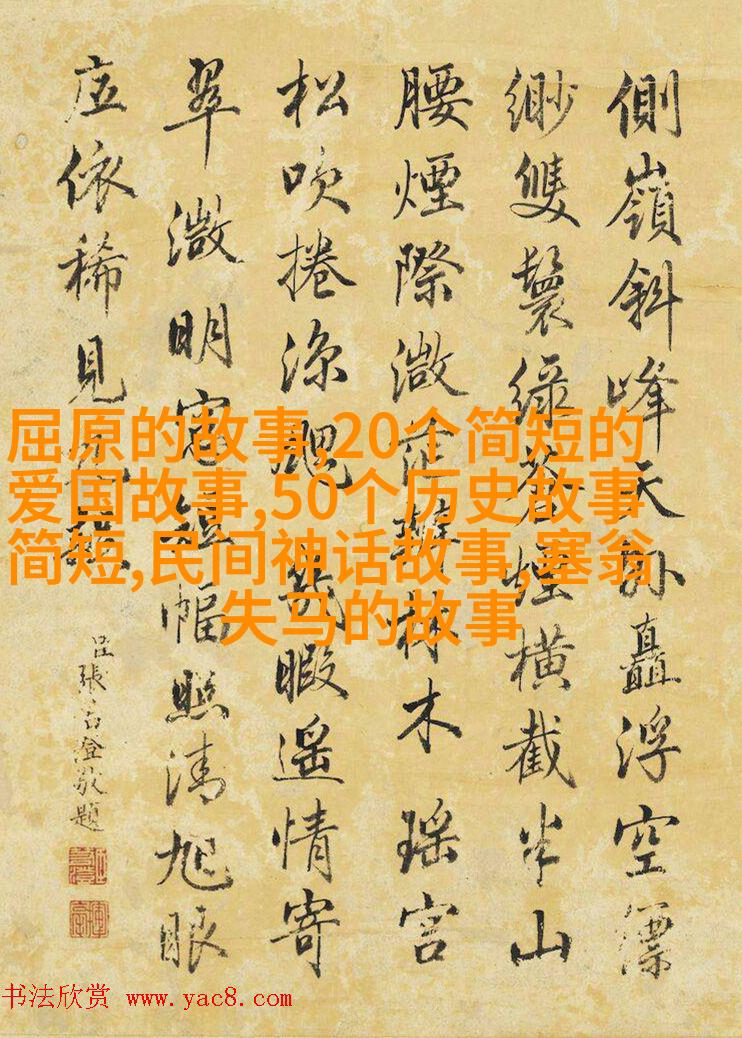 側嶺斜峰天外矗浮空縹
緲雙鬟綠蒼煙橫截半山
腰煙際微茫辨林木瑤宮
松吹捲涼颸幾暇遙情寄
翠微明窗幅照清旭眼
底依稀見
臣張若澄敬題
屈原的故事,20个简短的
爱国故事,50个历史故事
简短,民间神话故事,塞翁
失马的故事
书法欣赏 www.yac8.com